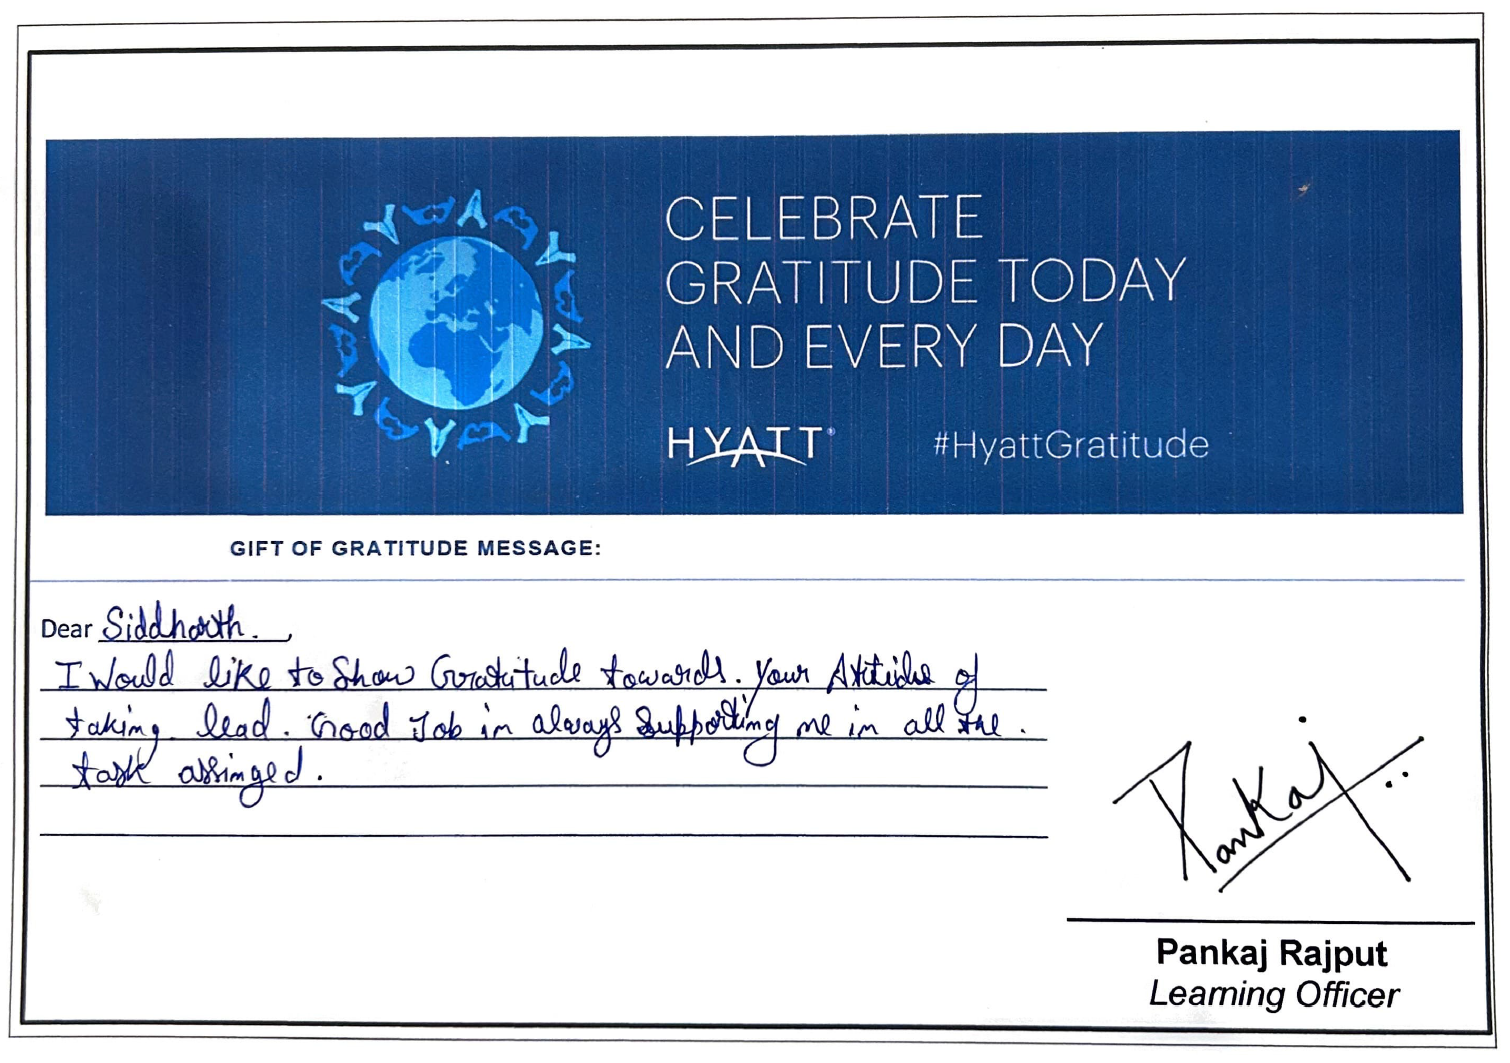 CELEBRATE
GRATITUDE TODAY
AND EVERY DAY
HYATT®
#HyattGratitude
GIFT OF GRATITUDE MESSAGE:
Dear Siddharth.,
I Would like to Show Gratitude towards. Your Attitide of
taking lead. Good Job in always Supporting me in all the.
task assinged.
Pankaj
Pankaj Rajput
Learning Officer